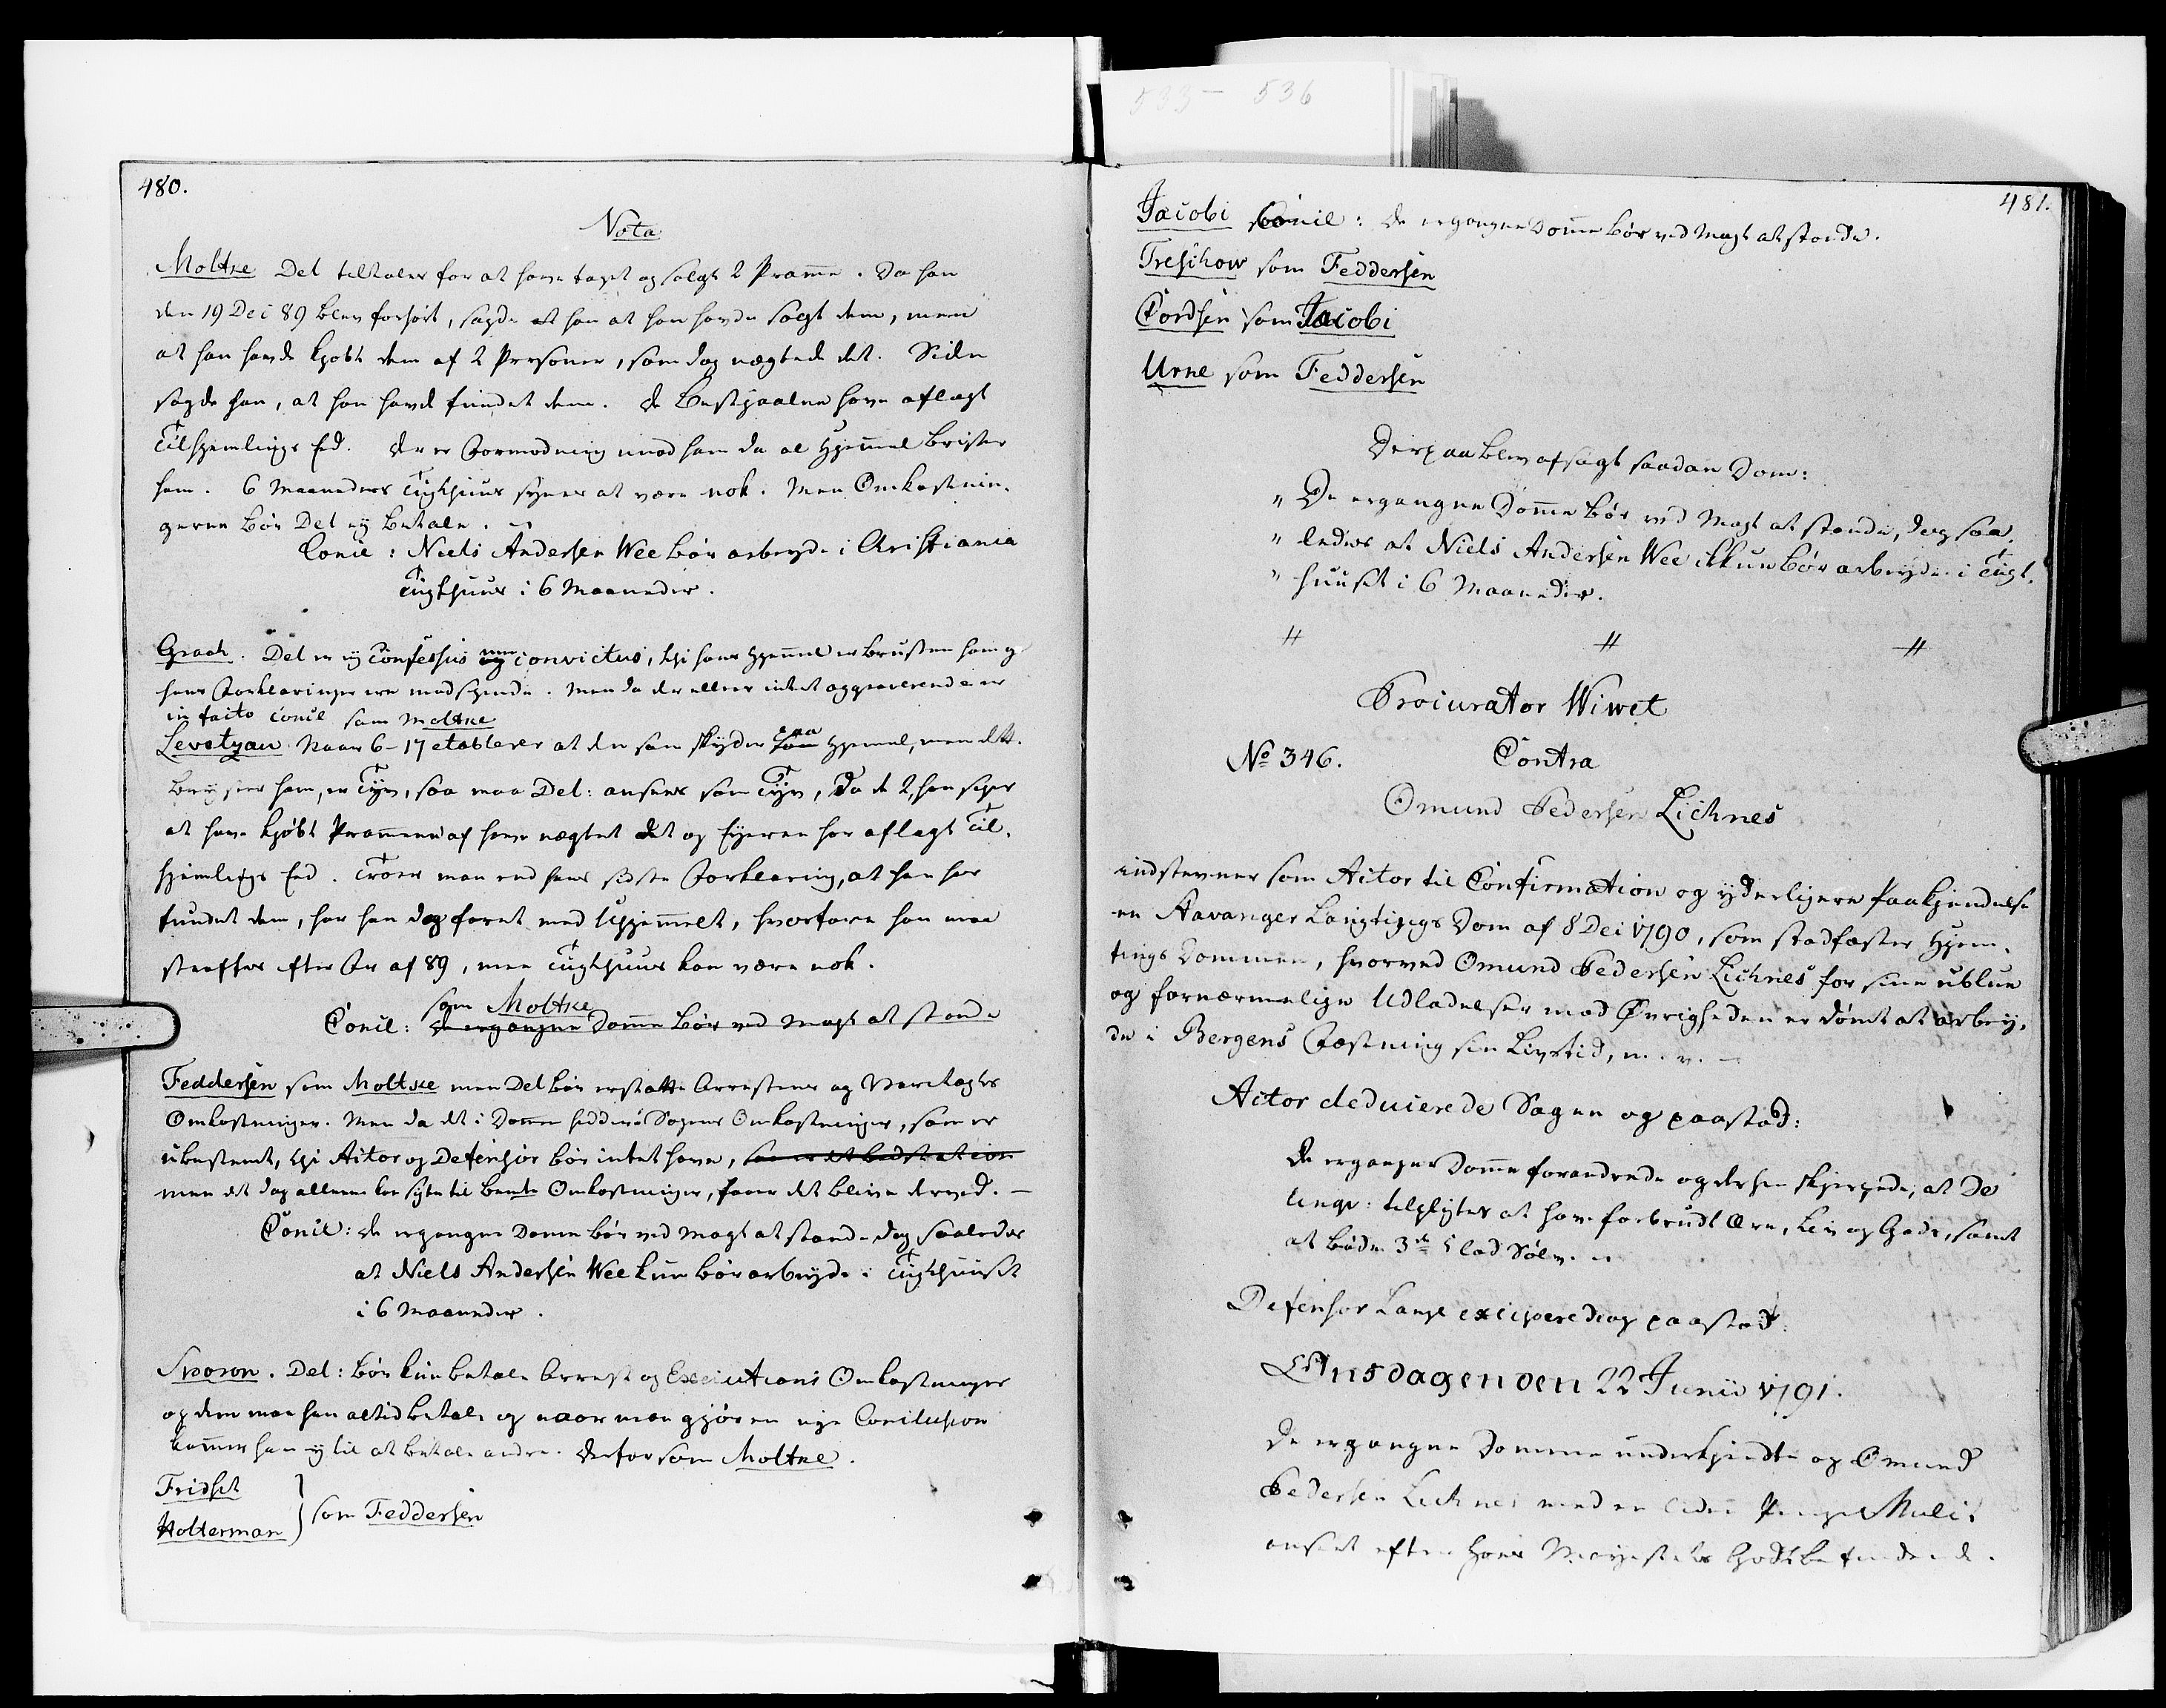 480.
Nota
Moltke Del tiltales for at have taget og solgt 2 Pramme. Da han
den 19 Dec 89 blev forhørt, sagde at han at han havde solgt dem, men
at han havde kjøbt dem af 2 Personer, som dog nægtede det. Siden
sagde han, at han havde fundet dem. De Bestjaalne have aflagt
Tilhjemlings Ed. Der er Formodning mod ham da al Hjemmel brister
ham. 6 Maaneders Tugthuus synes at være nok. Men Omkostnin-
gerne bør Del ej betale.
Concl: Niels Andersen Wee bør arbejde i Christiania
Tugthuus i 6 Maaneder.
Graah. Del er ej Confessus men convictus, thi hans Hjemmel er brusten ham og
hans Forklaringer ere modsigende. Men da der ellers intet aggraverende er
in facto concl som Moltke
Levetzau. Naar 6-17 etablerer at den som skyder paa Hjemmel, men dett.
brister ham, er Tyv, saa maa Del: ansees som Tyv, Da de 2, han siger
at have kjøbt Prammene af have nægtet det og Ejerne har aflagt Til-
hjemlings Ed. Troer man end hans sidste Forklaring, at han har
fundet dem, har han dog faret med Uhjemmelt, hvorfore han maa
straffes efter Fr af 89, men Tugthuus kan være nok.
som Moltke
Concl: De ergangne Domme bør ved Magt at stande
Feddersen som Moltke men Del bør erstatte Arrestens og Varetægts
Omkostninger. Men da det i Dommen hedder Sagens Omkostninger, som er
ubestemt, thi Actor og Defensor bør intet have,
men det dog allene kan sigte til bemte Omkostninger, faaer det blive derved. —
Concl: De ergangne Domme bør ved Magt at stande dog saaledes
at Niels Andersen Wee kun bør arbejde i Tugthuuset
i 6 Maaneder.
Del: bør kun betale Arrest og Executions Omkostninger
og dem maa han altid betale og naar man gjør en nye Conclusion
kommer han ej til at betale andre. Derfor som Moltke.
Fridsch
Holterman } som Feddersen
481.
Jacobi Concl: De ergangne Domme bør ved Magt at stande.
Treschow som Feddersen
Cordsen som Jacobi
Urne som Feddersen
Derpaa blev afsagt saadan Dom:
" De ergangne Domme bør ved Magt at stande, dog saa-
" ledes at Niels Andersen Wee ikkun bør arbejde i Tugt-
" huuset i 6 Maaneder.
" " "
Procurator Wiwet
No 346. Contra
Omund Pedersen Lichnes
indstevner som Actor til Confirmation og yderligere Paakjendelse
en Stavanger Laugtings Dom af 8 Dec 1790, som stadfæster Hjem-
tings Dommen, hvorved Omund Pedersen Lichnes for sine ublue
og fornærmelige Udladelser mod Øvrigheden er dømt at arbej-
de i Bergens Fæstning sin Livstid, m. v. —
Actor deducerede Sagen og paastod:
De ergangne Domme forandrede og derhen skjerpede, at De
linqv: tilpligtes at have forbrudt Ære, Liv og Gods, samt
at bøde 3de 5 lod Sølv.
Defensor Lange exciperede og paastod:
Onsdagen den 22 Junii 1791.
De ergangne Domme underkjendte og Omund
Pedersen Lichnes med en liden Penge Mulct
anseet efter Hans Majestæts Godtbefindende.